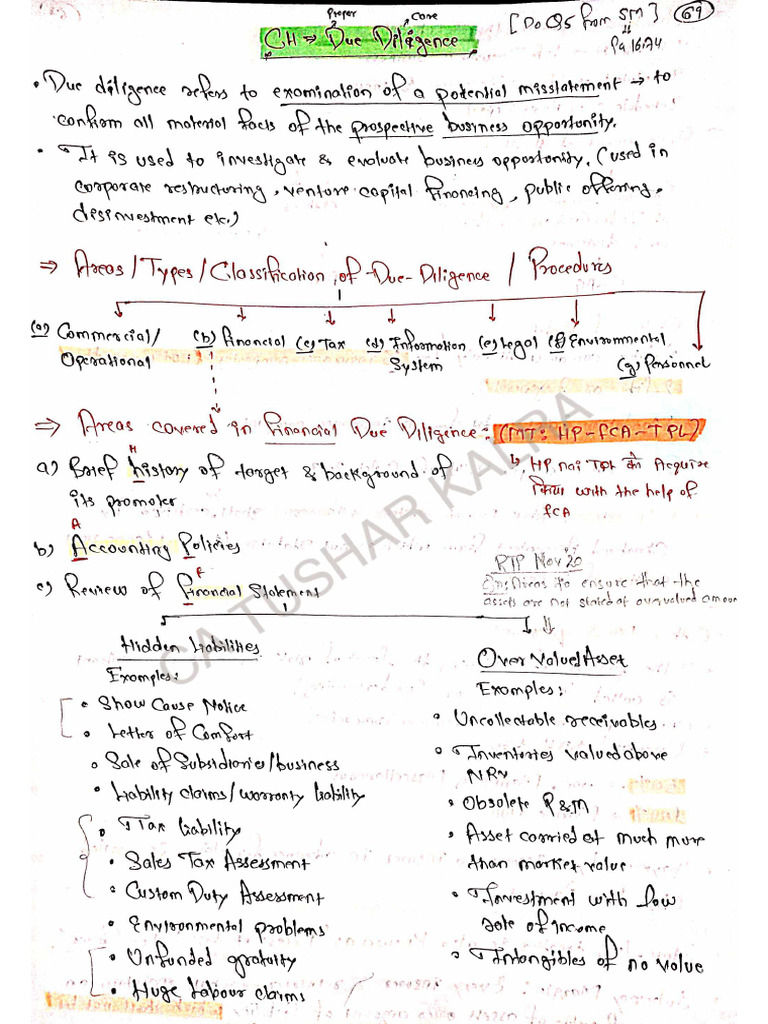 Proper Care
CH ⇒ Due Diligence
[Do Q5 from SM]
Pg 16.74
69
• Due diligence refers to examination of a potential misstatement → to
confirm all material facts of the prospective business opportunity.
• It is used to investigate & evaluate business opportunity. (used in
corporate restructuring, venture capital financing, public offering,
disinvestment etc.)
⇒ Areas/Types/Classification of Due-Diligence / Procedures
(a) Commercial/ (b) Financial (c) Tax (d) Information (e) Legal (f) Environmental
Operational System (g) Personnel
⇒ Areas covered in Financial Due Diligence: (MT: HP-FCA-TPL)
H
a) Brief history of target & background of
its promoter
HP nai TPL को Acquire
किया with the help of
FCA
A
b) Accounting Policies
F
c) Review of Financial Statement
RTP Nov'20
to ensure that the
assets are not stated at overvalued amoun
Hidden Liabilities
Examples:
• Show Cause Notice
• Letter of Comfort
• Sale of Subsidiaries/business
• Liability claims/warranty liability
• Tax liability
• Sales Tax Assessment
• Custom Duty Assessment
• Environmental problems
• Unfunded gratuity
• Huge Labour claims
Over Valued Asset
Examples:
• Uncollectable receivables.
• Inventories valued above
NRV
• Obsolete P&M
• Asset carried at much more
than market value
• Investment with low
rate of income
• Intangibles of no value
CA TUSHAR KALRA